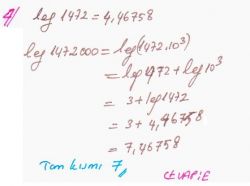 4) log 1472 = 4,46758
log 1472000 = log(1472.10³)
= log 1472 + log 10³
= 3 + log 1472
= 3 + 4,46758
= 7,46758
Tam kısmı 7,
CEVAP:E